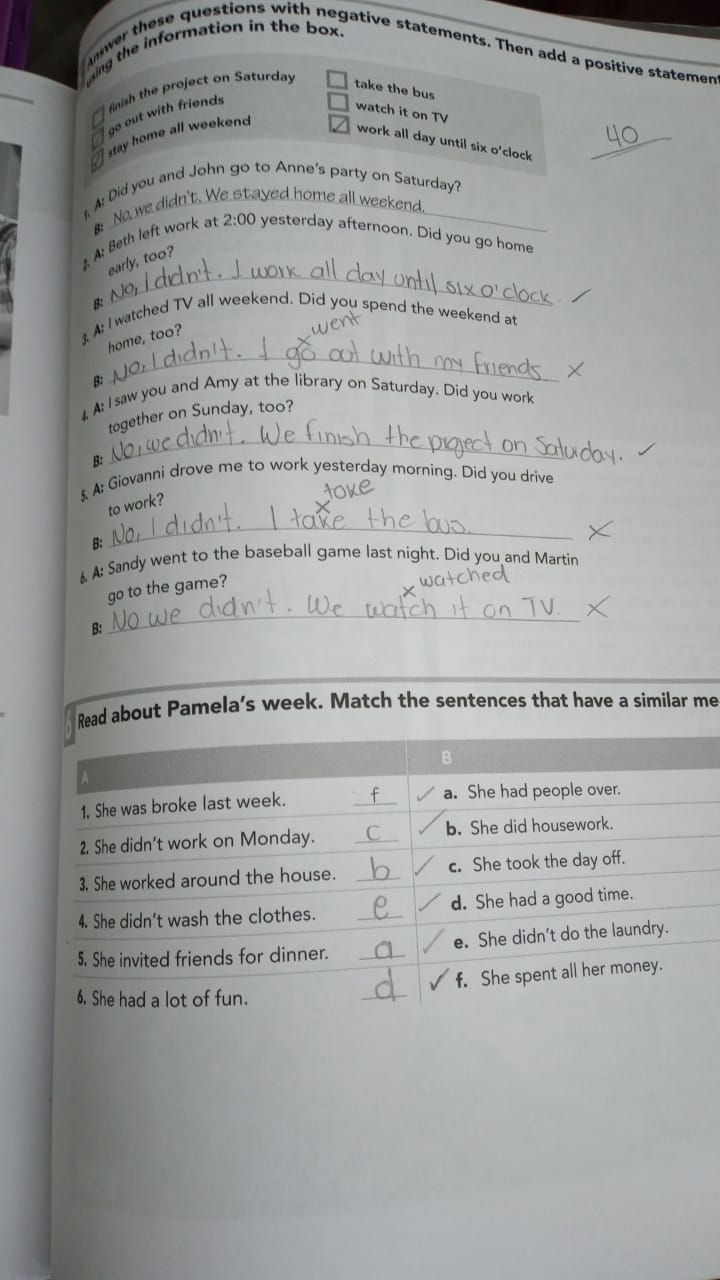 Answer these questions with negative statements. Then add a positive statement
using the information in the box.
finish the project on Saturday
go out with friends
stay home all weekend
take the bus
watch it on TV
work all day until six o'clock
40
1. A: Did you and John go to Anne's party on Saturday?
B: No, we didn't. We stayed home all weekend.
2. A: Beth left work at 2:00 yesterday afternoon. Did you go home
early, too?
B: No, I didn't. I work all day until six o'clock.
3. A: I watched TV all weekend. Did you spend the weekend at
home, too?
went
B: No, I didn't. I go out with my friends
4. A: I saw you and Amy at the library on Saturday. Did you work
together on Sunday, too?
B: No, we didn't. We finish the project on Saturday.
5. A: Giovanni drove me to work yesterday morning. Did you drive
to work?
toke
B: No, I didn't. I take the bus.
6. A: Sandy went to the baseball game last night. Did you and Martin
go to the game?
watched
B: No we didn't. We watch it on TV.
6 Read about Pamela's week. Match the sentences that have a similar me
A B
1. She was broke last week. f a. She had people over.
2. She didn't work on Monday. c b. She did housework.
3. She worked around the house. b c. She took the day off.
4. She didn't wash the clothes. e d. She had a good time.
5. She invited friends for dinner. a e. She didn't do the laundry.
6. She had a lot of fun. d f. She spent all her money.